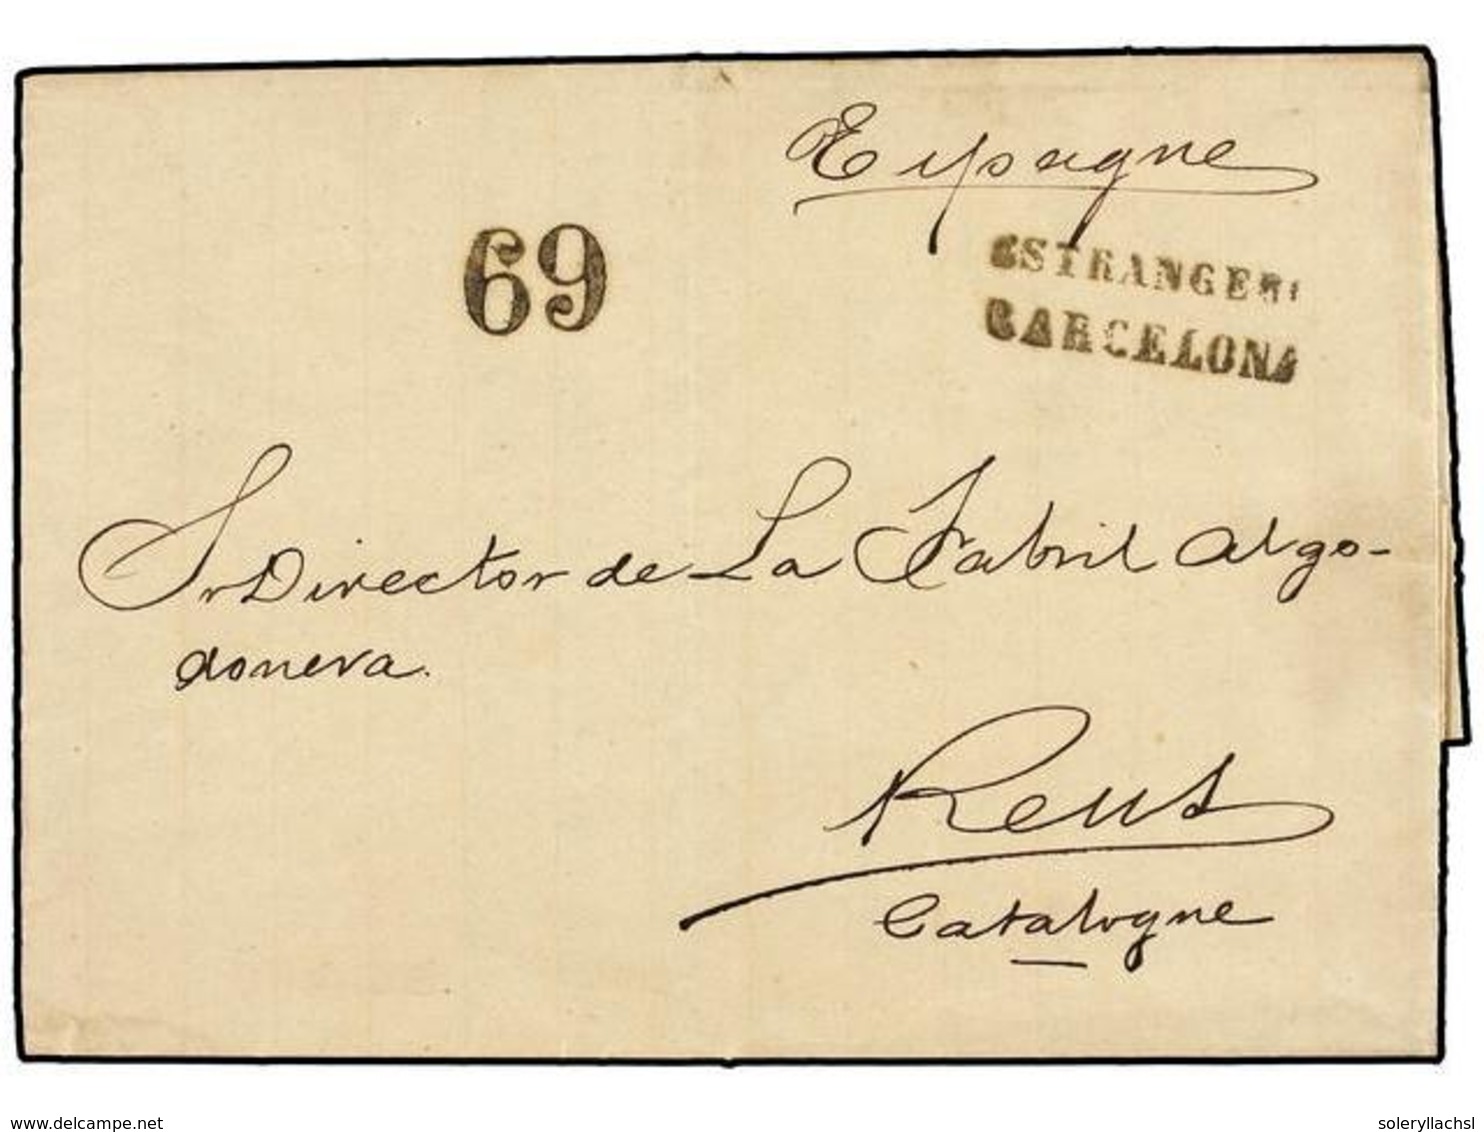 Espagne
69
ESTRANGERO
BARCELONA
Sr Director de La Fabril Algo-
donera.
Reus
Catalogne
delcampe.net
soleryllachsl